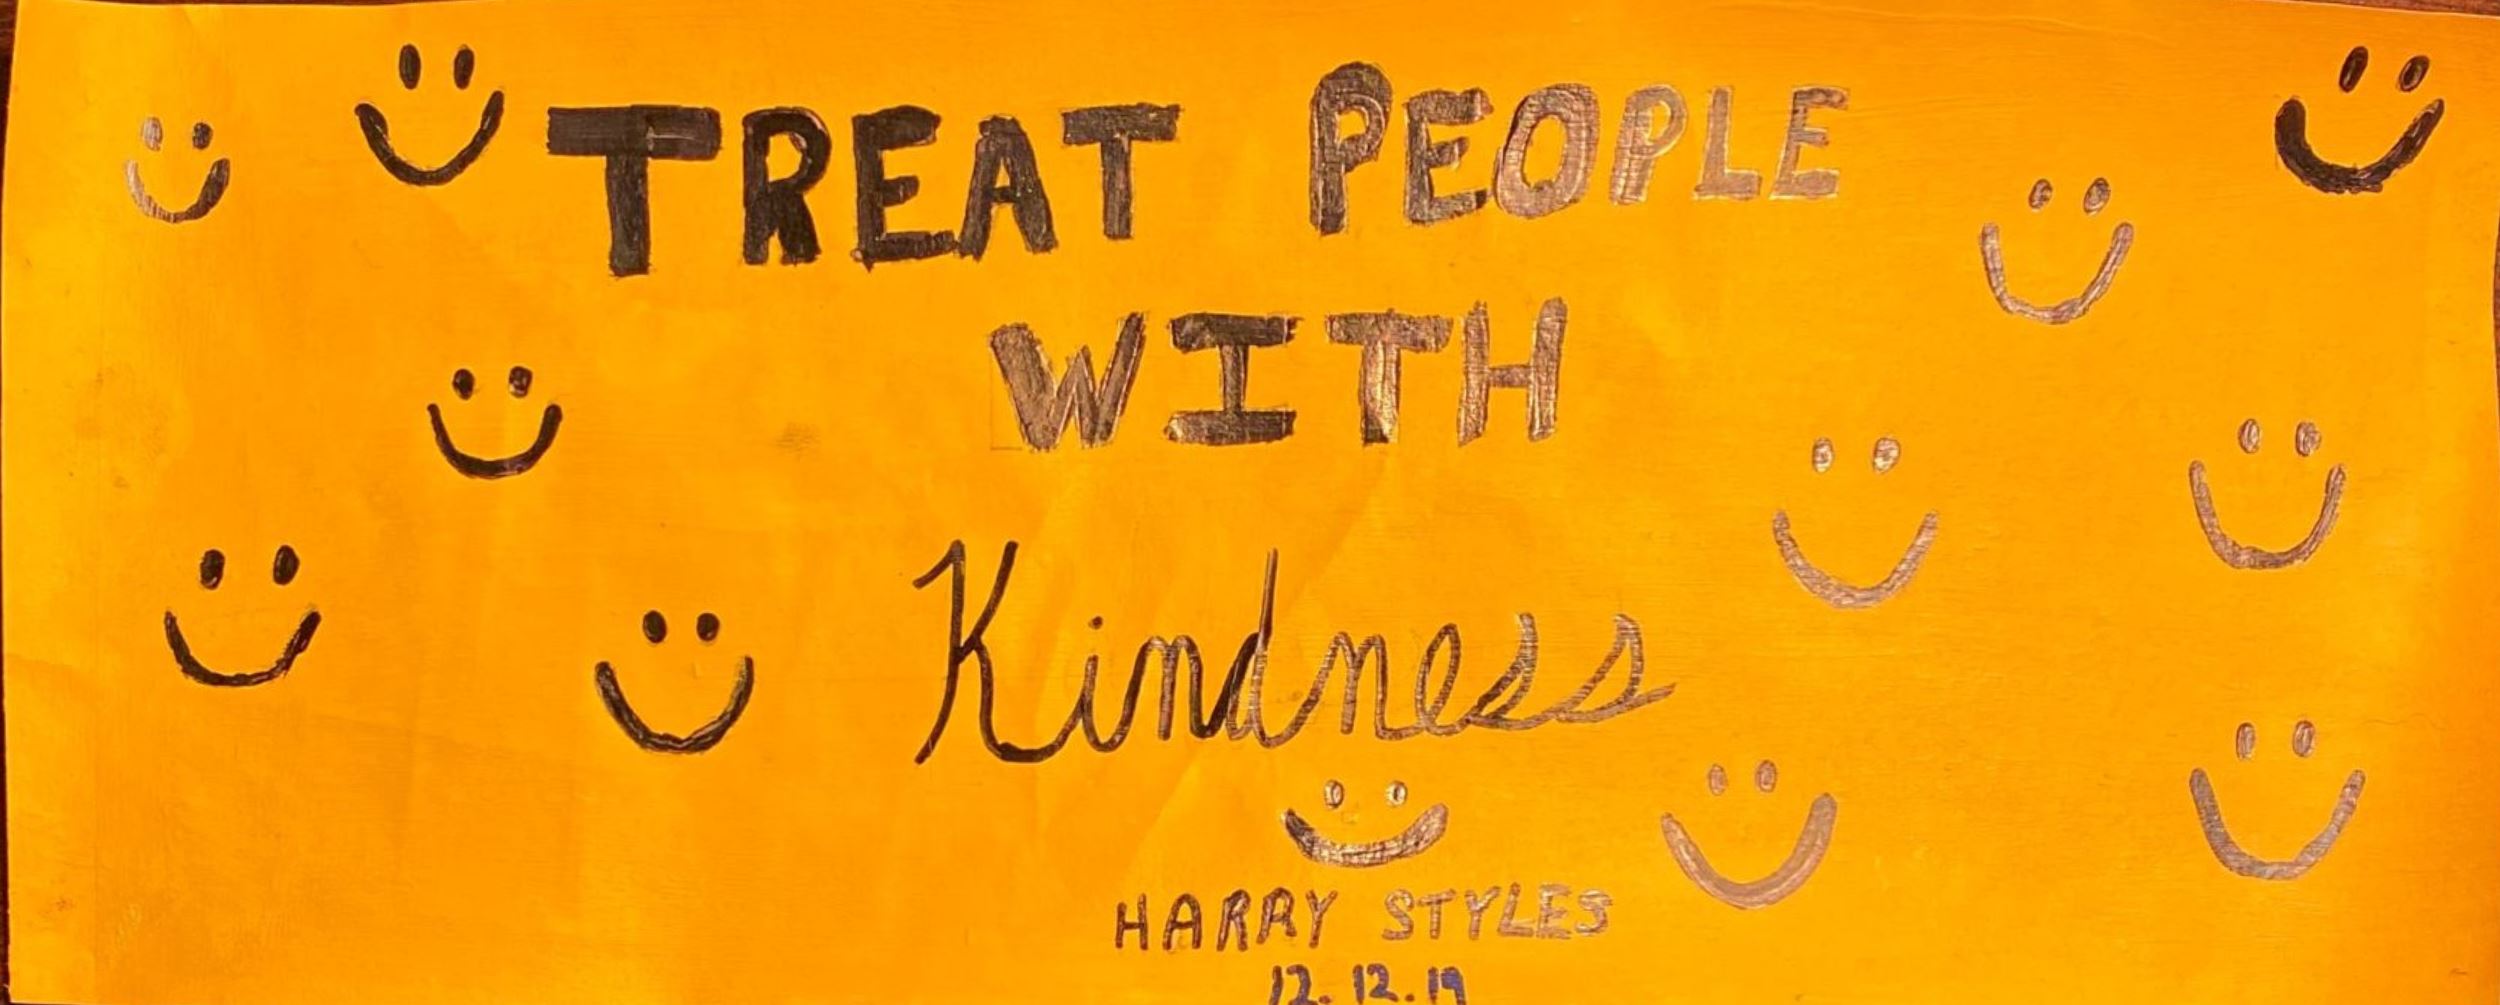 TREAT PEOPLE
WITH
Kindness
HARRY STYLES
12.12.19